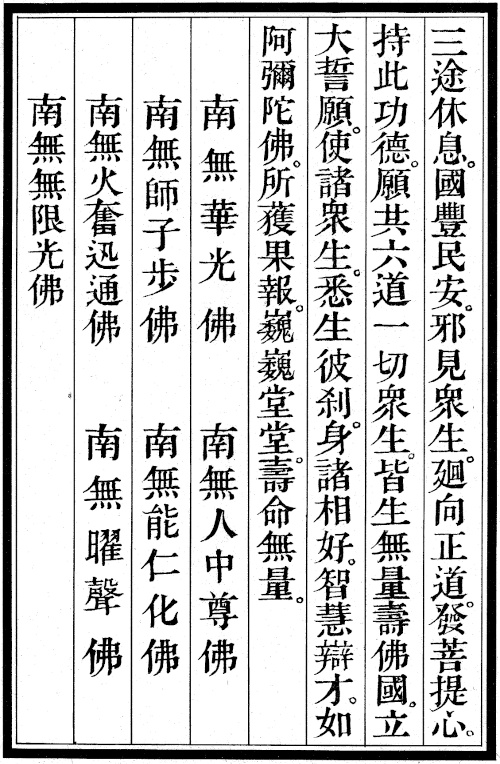 三途休息。國豐民安。邪見衆生。廻向正道。發菩提心。
持此功德。願共六道一切衆生。皆生無量壽佛國。立
大誓願。使諸衆生。悉生彼刹。身諸相好。智慧辯才。如
阿彌陀佛。所獲果報。巍巍堂堂。壽命無量。
南無華光佛　南無人中尊佛
南無師子步佛　南無能仁化佛
南無火奮迅通佛　南無曜聲佛
南無無限光佛